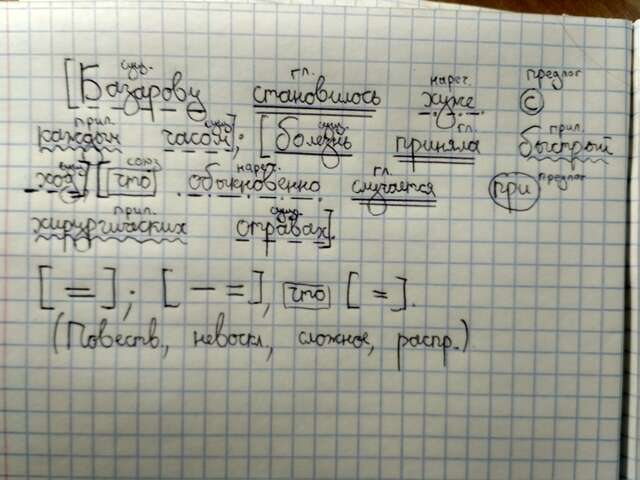 сущ. гл. нареч. предлог
[Базарову становилось хуже с
прил. сущ. сущ. гл. прил.
каждым часом]; [болезнь приняла быстрый
сущ. союз нареч. гл. предлог
ход] [что обыкновенно случается при
прил. сущ.
хирургических отравах].
[=]; [— =], что [=].
(Повеств., невоскл., сложное, распр.)